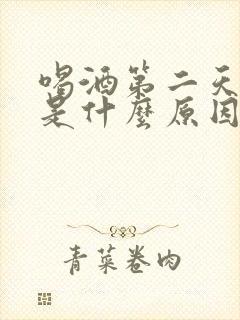 喝酒第二天
是什麼原因
青菜卷肉